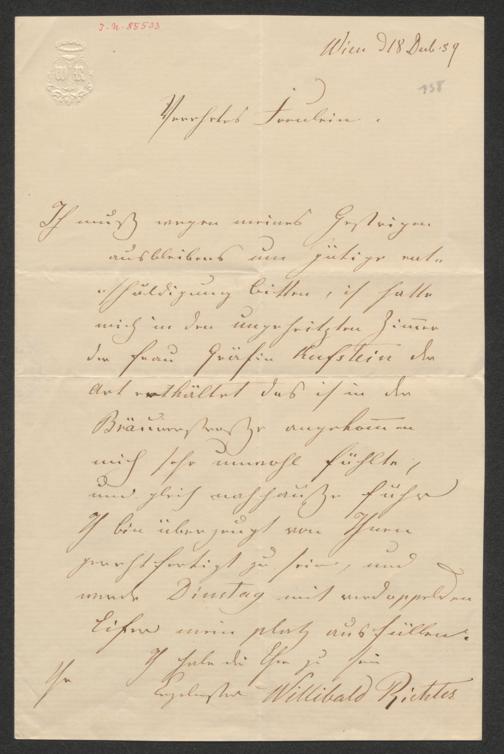 J.N. 85503
WR
Wien d 18 Dcb. 59
138
Verehrtes Freulein.
Ich muß wegen meines Gestrigen
ausbleibens um gütige ent-
schuldigung bitten, ich hatte
mich in den ungeheitzten Zimmer
der Frau Gräfin Kufstein der
Art erthältet das ich in der
Bräunerstraße angekommen
mich sehr unwohl fühlte,
und gleich nachhauße fuhr
Ich bin überzeugt von Ihnen
gerechtfertigt zu sein, und
werde Dinstag mit verdoppelden
Eifer mein platz ausfüllen.
Ich habe die Ehre zu sein
Ihr
Willibald Richter